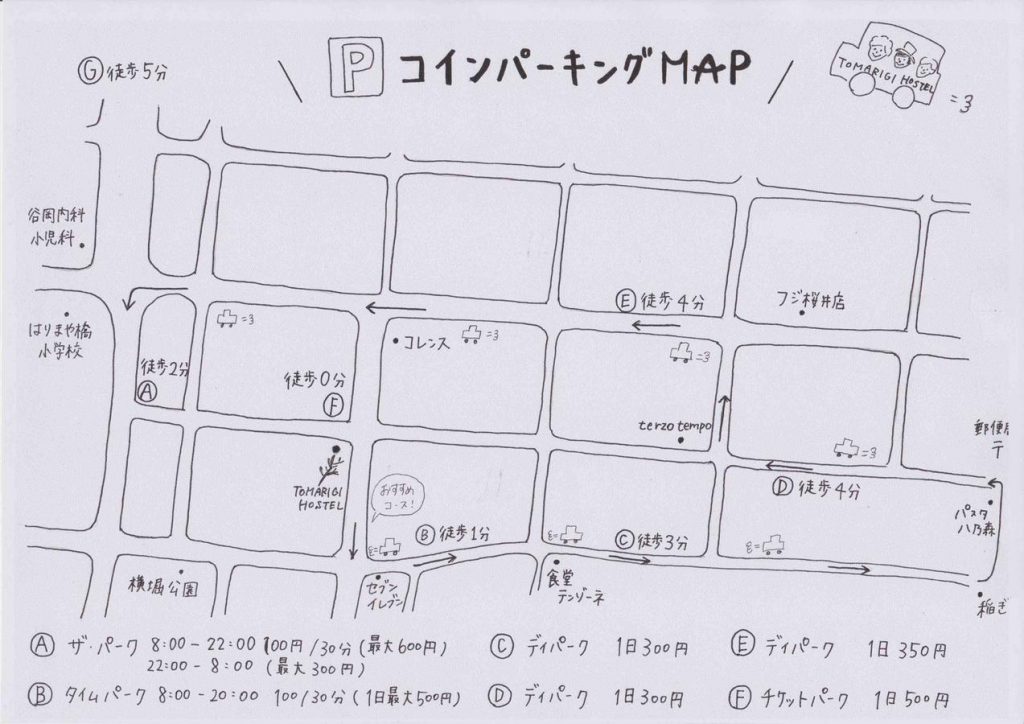 P コインパーキングMAP
TOMARIGI HOSTEL
G 徒歩5分
谷岡内科
小児科
はりまや橋
小学校
E 徒歩4分
フジ桜井店
コレンス
徒歩2分
A
徒歩0分
F
terzo tempo
郵便局
〒
TOMARIGI
HOSTEL
おすすめ
コース!
B 徒歩1分
C 徒歩3分
D 徒歩4分
パスタ
八乃森
横堀公園
セブン
イレブン
食堂
テンゾーネ
稲ぎ
A ザ・パーク 8:00-22:00 100円/30分(最大600円)
22:00-8:00 (最大300円)
B タイムパーク 8:00-20:00 100/30分(1日最大500円)
C デイパーク 1日300円
D デイパーク 1日300円
E デイパーク 1日350円
F チケットパーク 1日500円